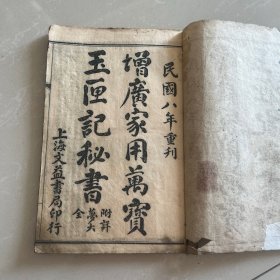 民國八年重刊
增廣家用萬寶
玉匣記秘書
附詳
夢大全
上海文益書局印行